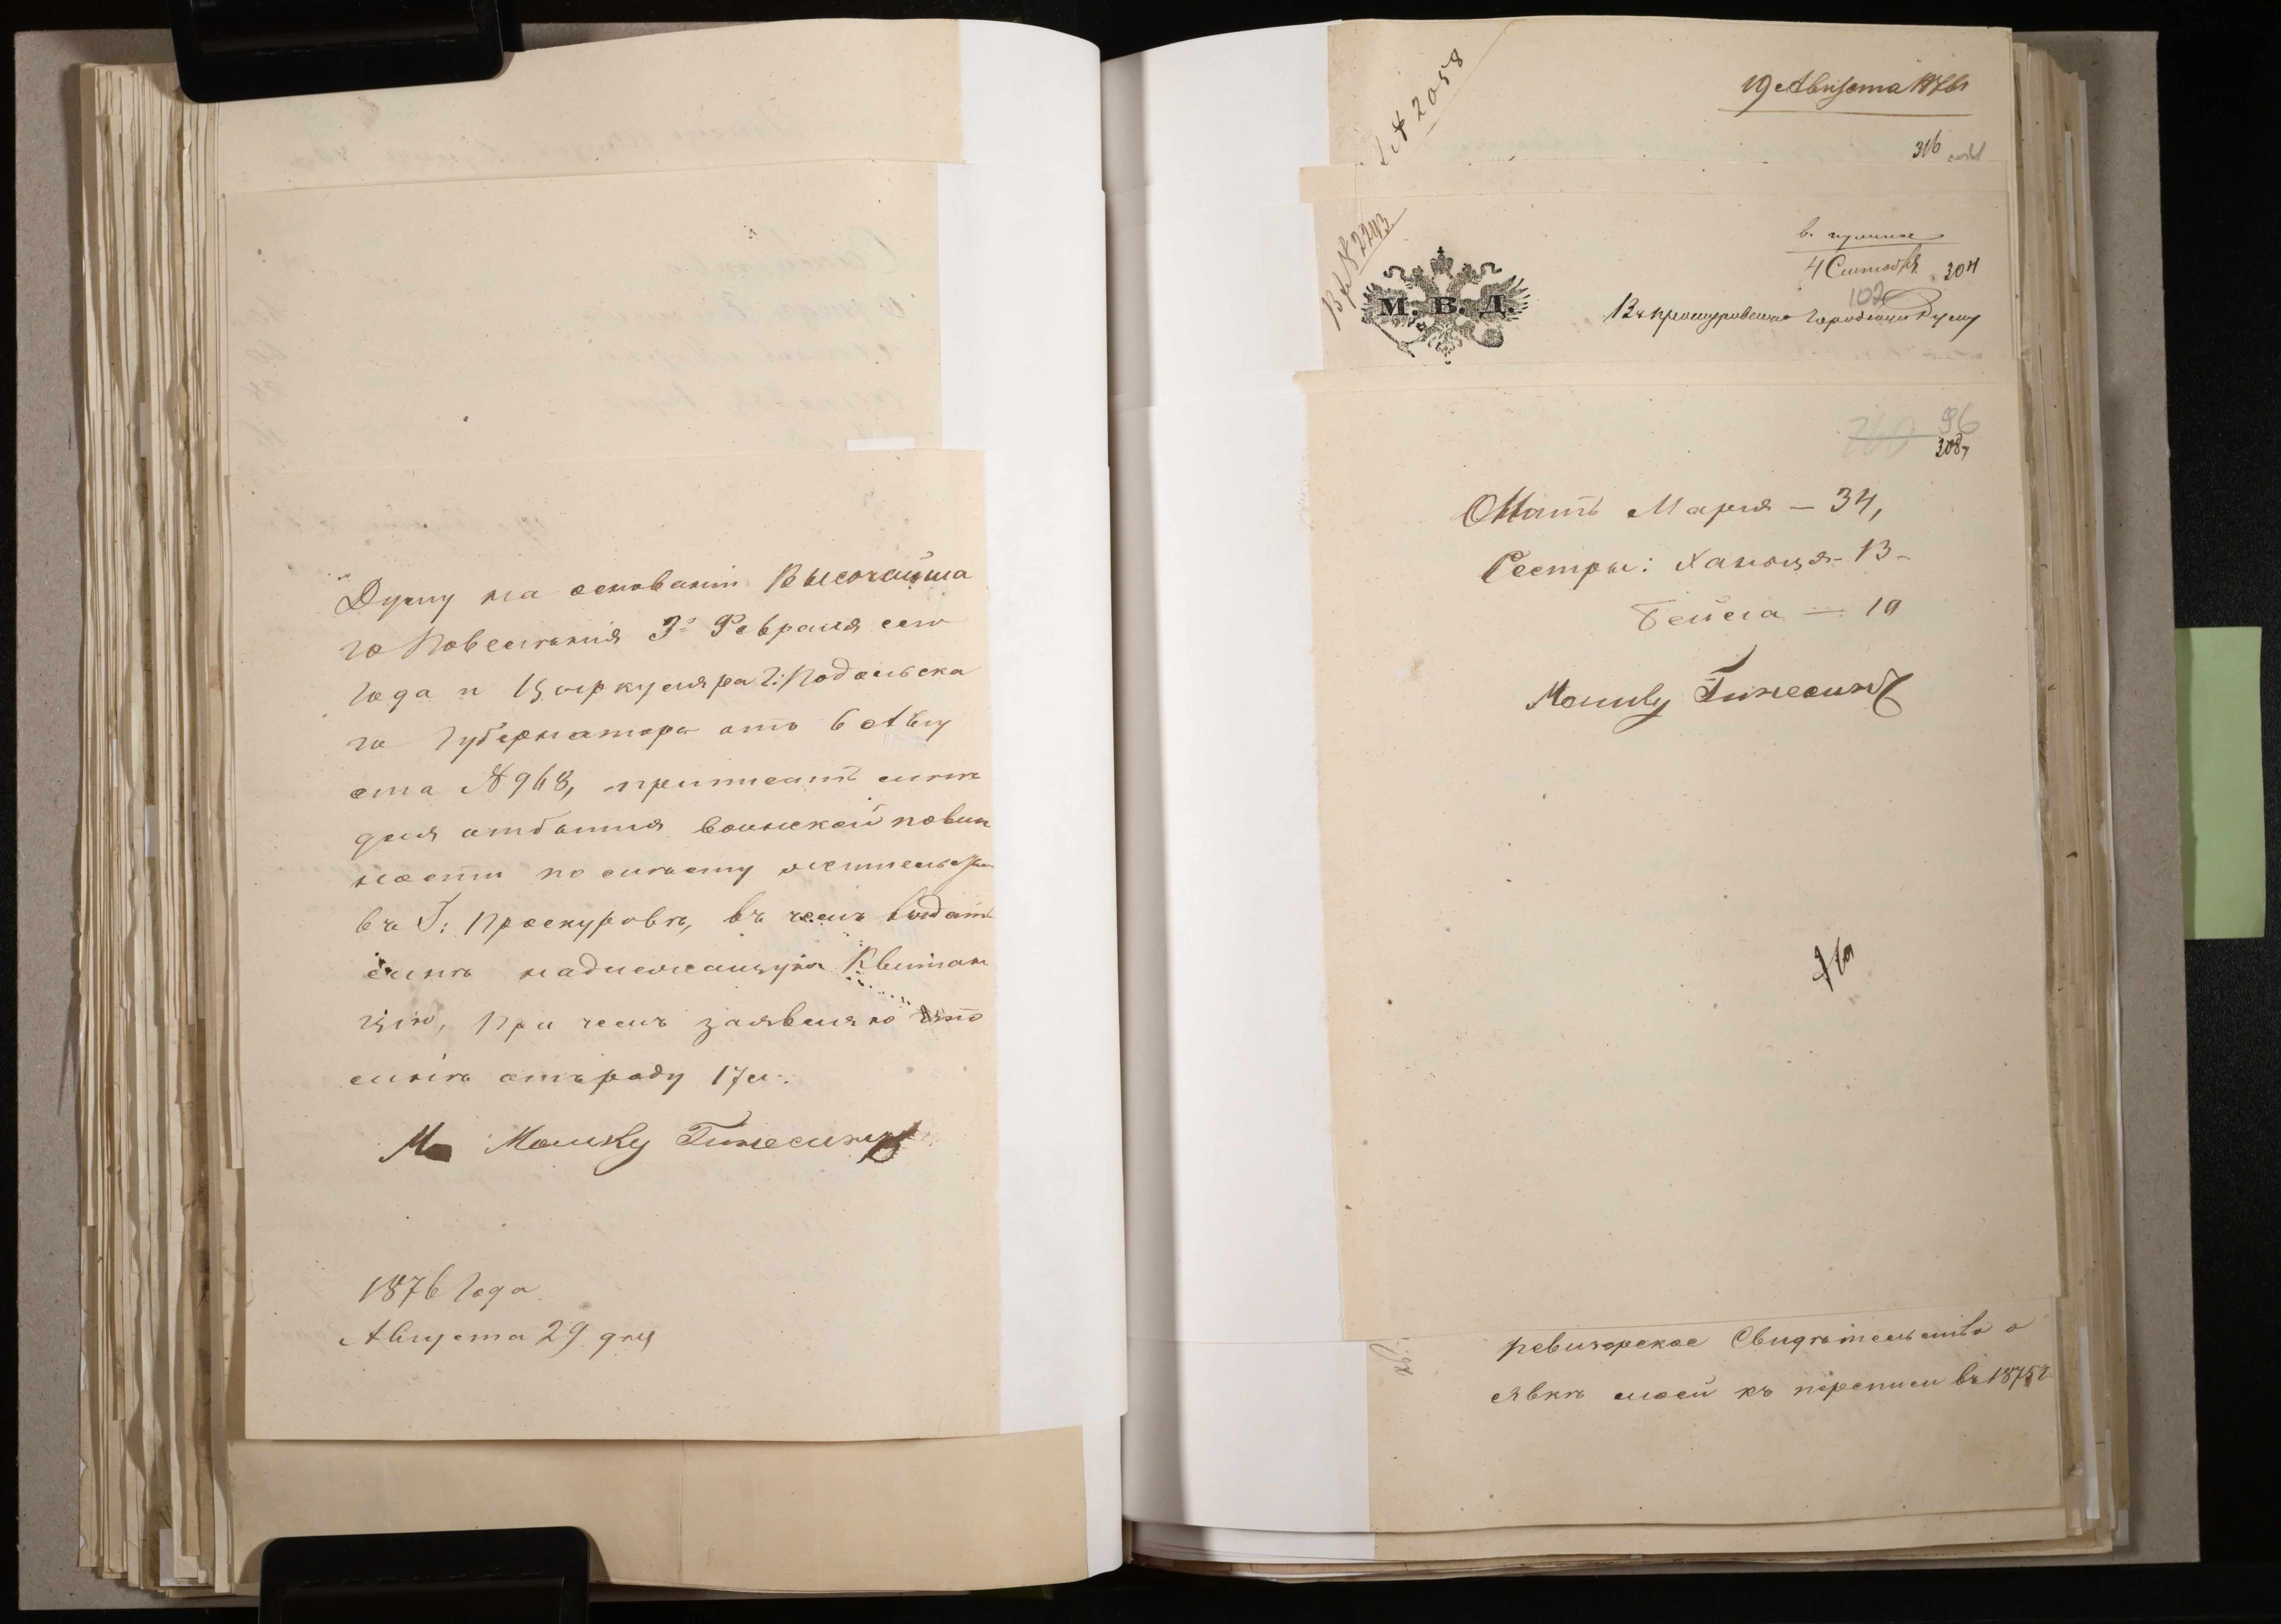 Думу на основаніи Высочайша
го Повелѣнія 3º Февраля сего
Года и Циркуляра Г: Подольска
го Губернатора отъ 6 Авгу
ста № 968, приписать мнѣ
для отбытия воинской повин
ности по моему жительству
въ Г: Проскуровѣ, въ чемъ выдать
мнѣ надлежащую Квитан
цію, При чемъ заявляю что
мнѣ отъ роду 17 л.
Мошку Гинесинъ
1876 Года
Августа 29 дня
№ 2058
19 Августа 1876
316
Вх № 2243
М. В. Д.
4 Сентября 304
102
Въ проскуровскую Городскую Думу
260 96
308
Мать Мария — 34,
Сестры: Ханця - 13 -
Бейла — 10
Мошку Гинесинъ
ревизорское Свидѣтельство о
явкѣ моей къ переписи въ 1875 г